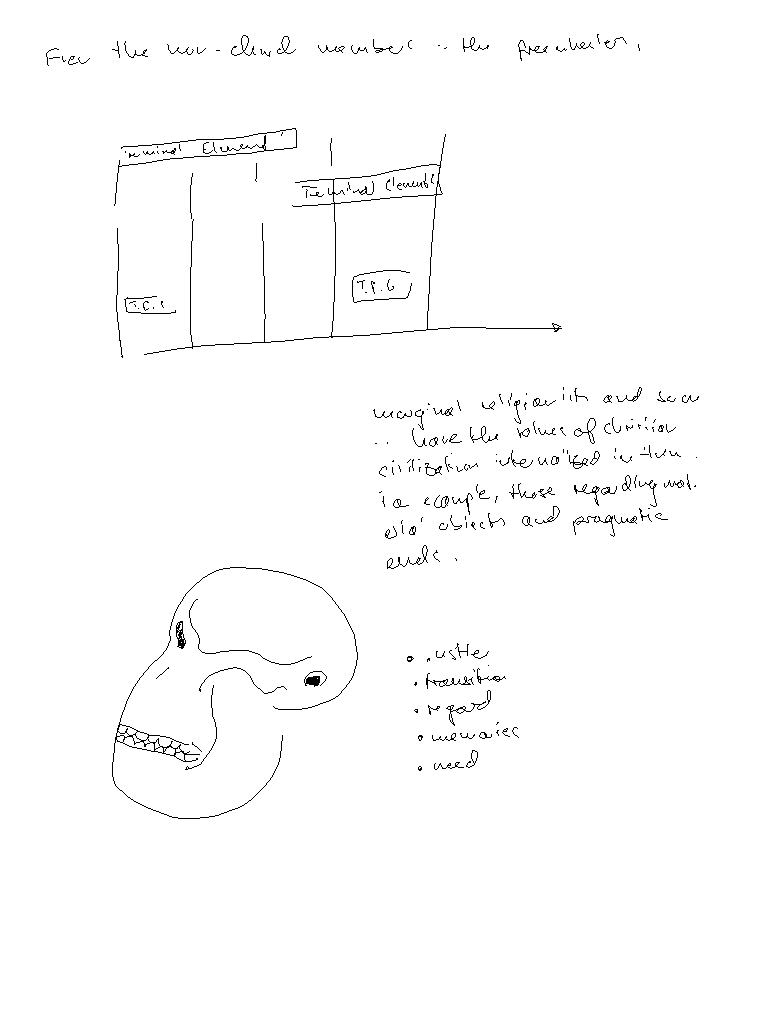 the non-church members .. the freewheelers,
Terminal Element
Terminal Element
T.E.1
marginal religionists and
.. have the values of christian
civilization internalized in
example, those regarding mat-
objects and pragmatic
ends.
• 
• transition
• regard
• memories
• need